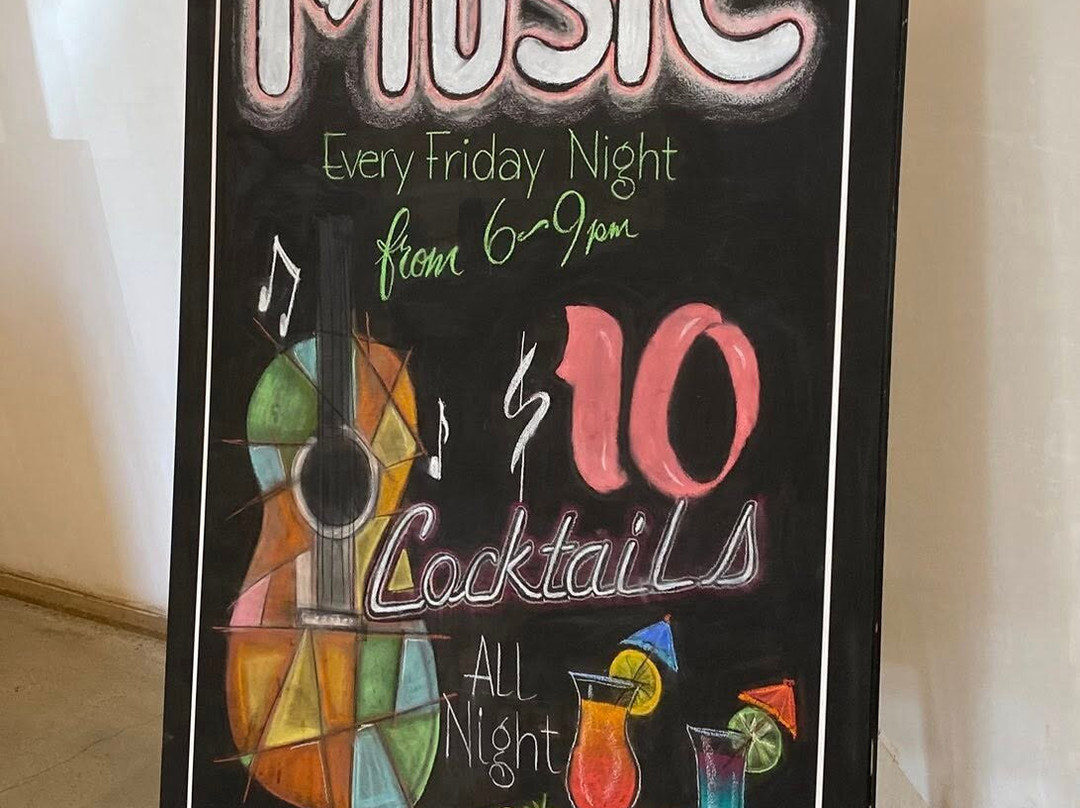 MUSIC
Every Friday Night
from 6~9pm
$10
Cocktails
All
Night